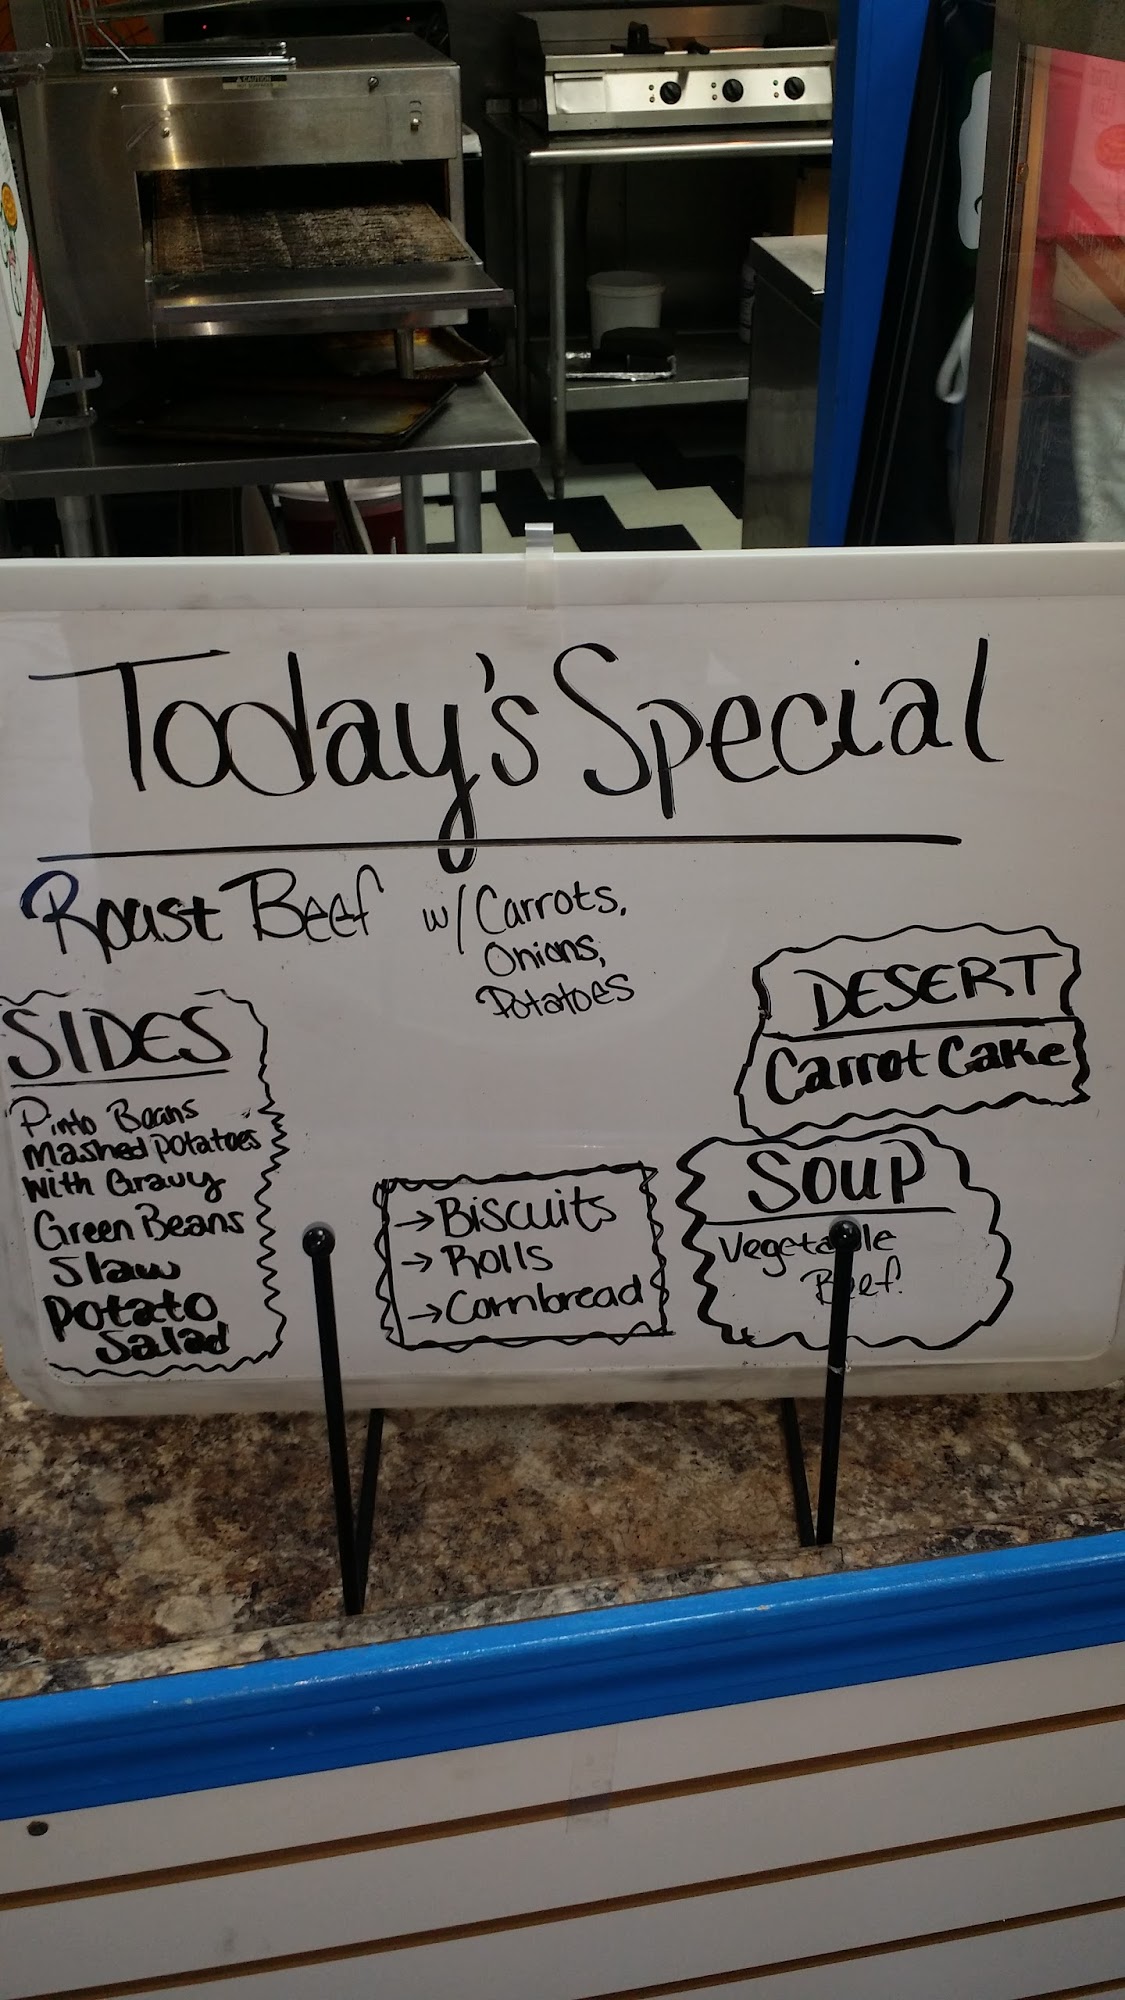 CAUTION
Today's Special
Roast Beef w/ Carrots,
Onions,
Potatoes
SIDES
Pinto Beans
Mashed Potatoes
With Gravy
Green Beans
Slaw
Potato
Salad
→ Biscuits
→ Rolls
→ Cornbread
DESERT
Carrot Cake
SOUP
Vegetable
Beef.